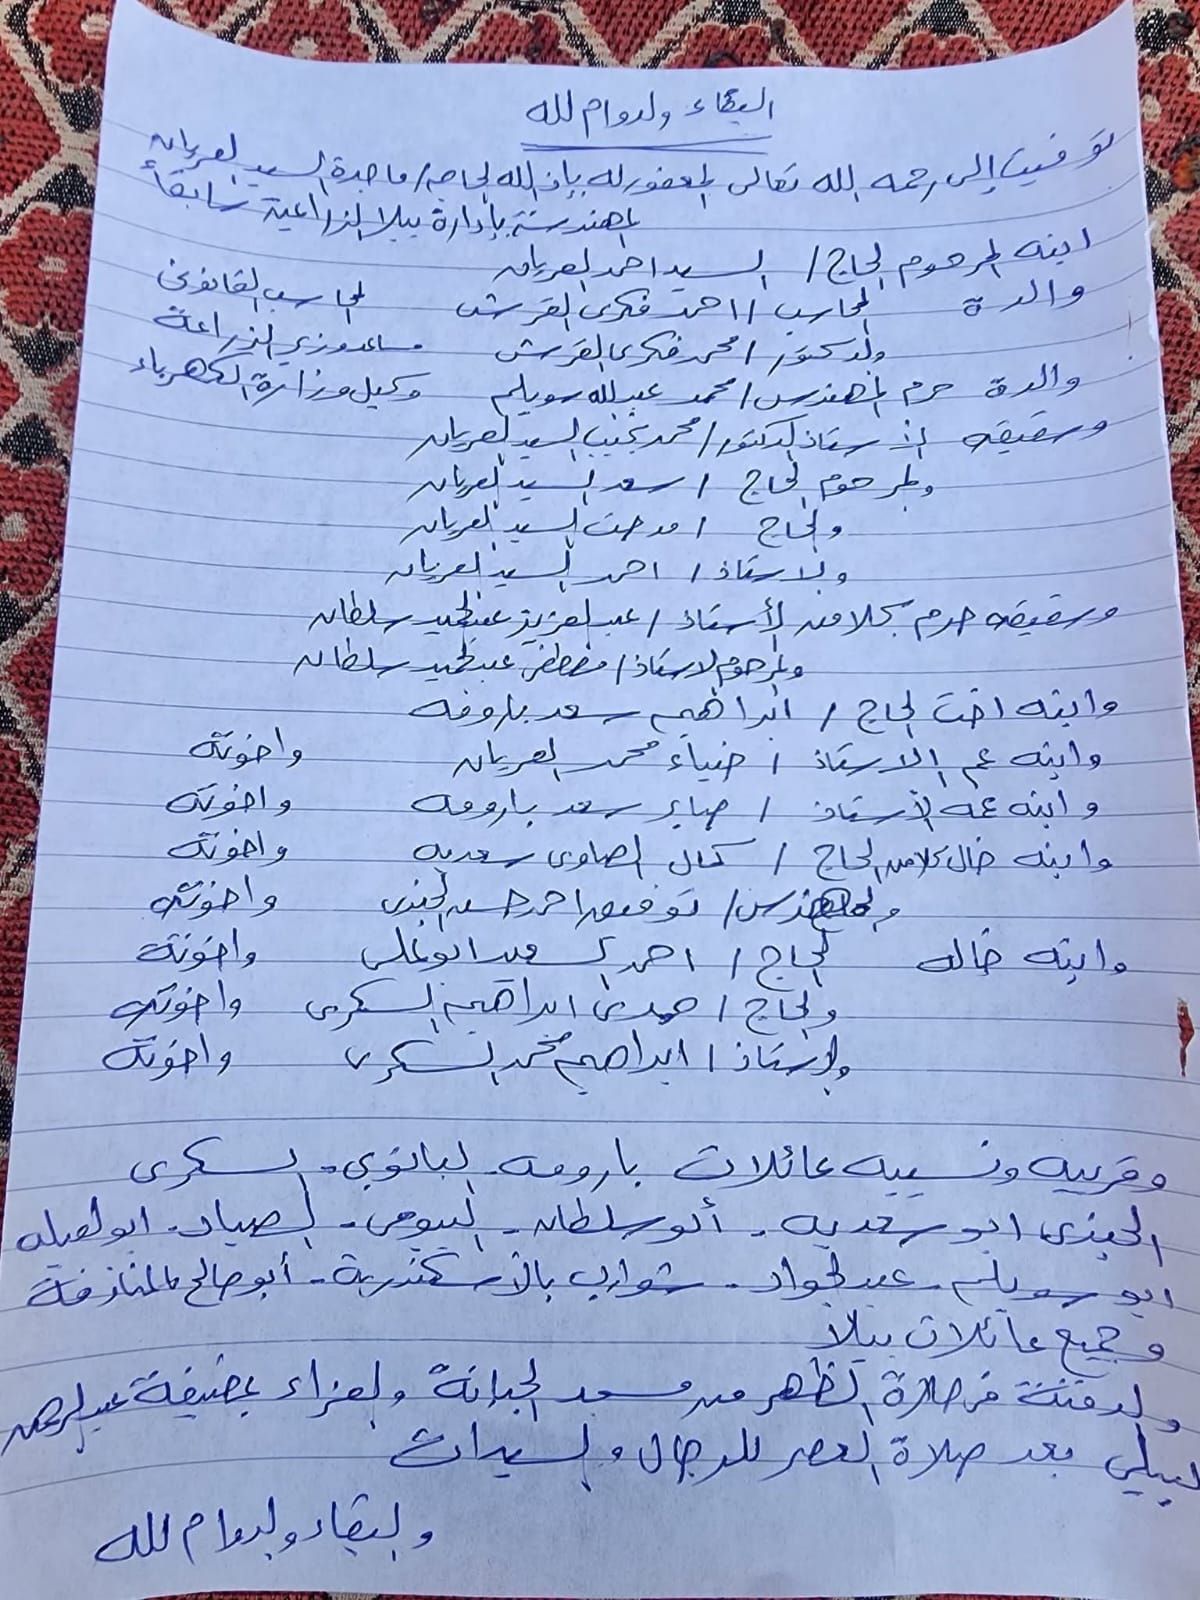 البقاء والدوام لله
توفيت إلى رحمه الله تعالى المغفور له بإذن الله الحاجه/ ماجدة السيد العريان
المهندسة بإدارة بيلا الزراعية سابقاً
ابنه المرحوم الحاج / السيد احمد العريان
والدة المحاسب / احمد فكرى القرش المحاسب القانونى
والدكتور / محمد فكرى القرش مساعد وزير الزراعة
والدة حرم المهندس / محمد عبدالله سويلم وكيل وزارة الكهرباء
وشقيقه الأستاذ الدكتور / محمد نجيب السيد العريان
والمرحوم الحاج / سعد السيد العريان
والحاج / مدحت السيد العريان
والاستاذ / احمد السيد العريان
وشقيقه حرم كلا من الأستاذ / عبدالعزيز عبدالحميد سلطان
والمرحوم الاستاذ / مصطفى عبدالحميد سلطان
وابنه اخت الحاج / ابراهيم سعد بارومه
وابنه عم الاستاذ / ضياء محمد العريان واخوته
وابنه عمه الأستاذ / صابر سعد بارومه واخوته
وابنه خال كلا من الحاج / كمال الصاوى سعديه واخوته
والمهندس / توفيق احمد حسن الجندى واخوته
وابنه خاله الحاج / احمد السعيد ابوعلى واخوته
والحاج / حمدى ابراهيم السكرى واخوته
والاستاذ / ابراهيم محمد السكرى واخوته
وقريبه ونسيبه عائلات بارومه - البانوبي - السكرى
الجندى ابو سعديه - أبو سلطان - البيومى - الصياد - ابو
ابو سويلم - عبدالجواد - شوارب بالاسكندرية - أبو صالح
وجميع عائلات بيلا
والدفنة صلاة الظهر من مسجد الجبانة والعزاء بمضيفة عبدالرحمن
البيلي بعد صلاة العصر للرجال والسيدات
والبقاء والدوام لله